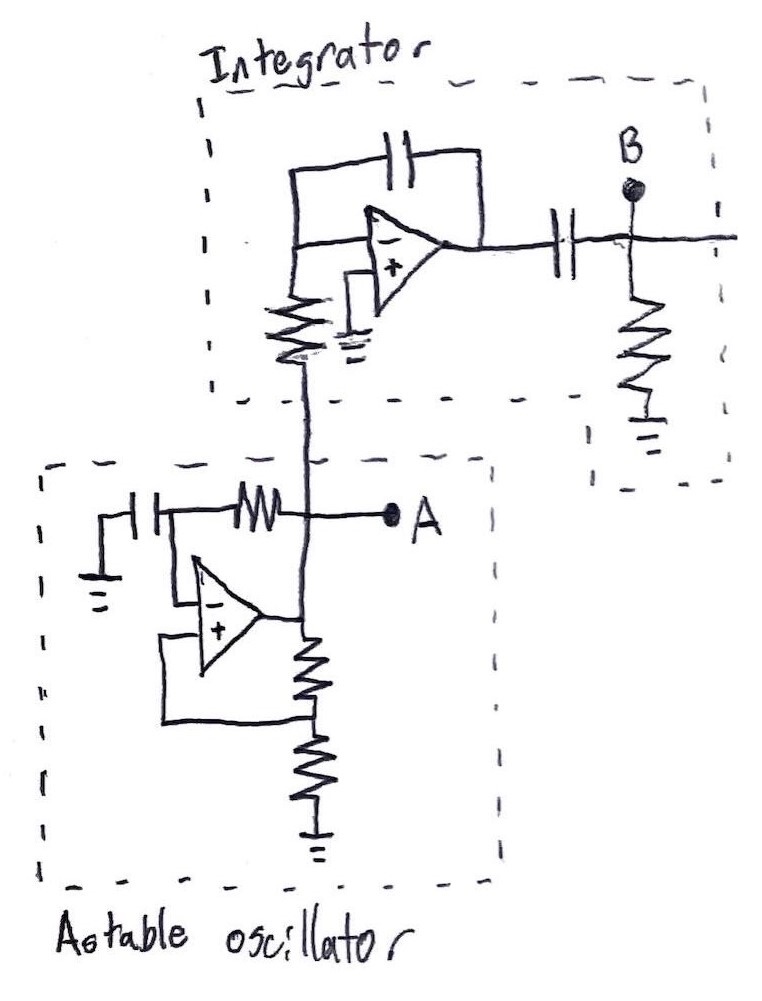 Integrator
B
−
+
A
−
+
Astable oscillator